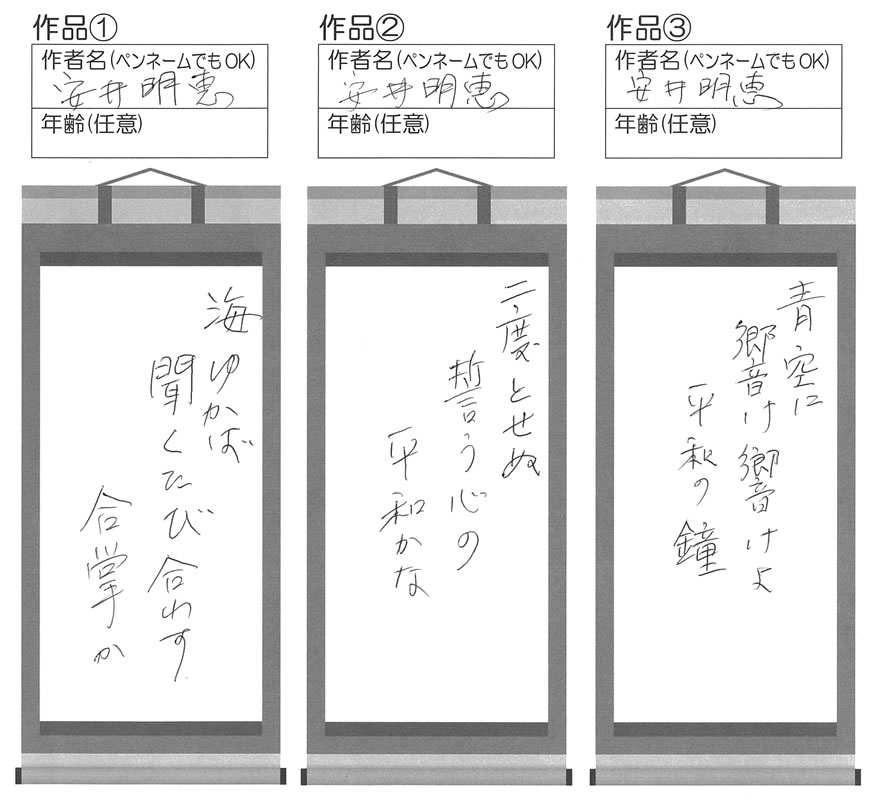 作品①
作者名(ペンネームでもOK)
安井明恵
年齢(任意)
海ゆかば
聞くたび合わす
合掌か
作品②
作者名(ペンネームでもOK)
安井明恵
年齢(任意)
二度とせぬ
誓う心の
平和かな
作品③
作者名(ペンネームでもOK)
安井明恵
年齢(任意)
青空に
響け響けよ
平和の鐘